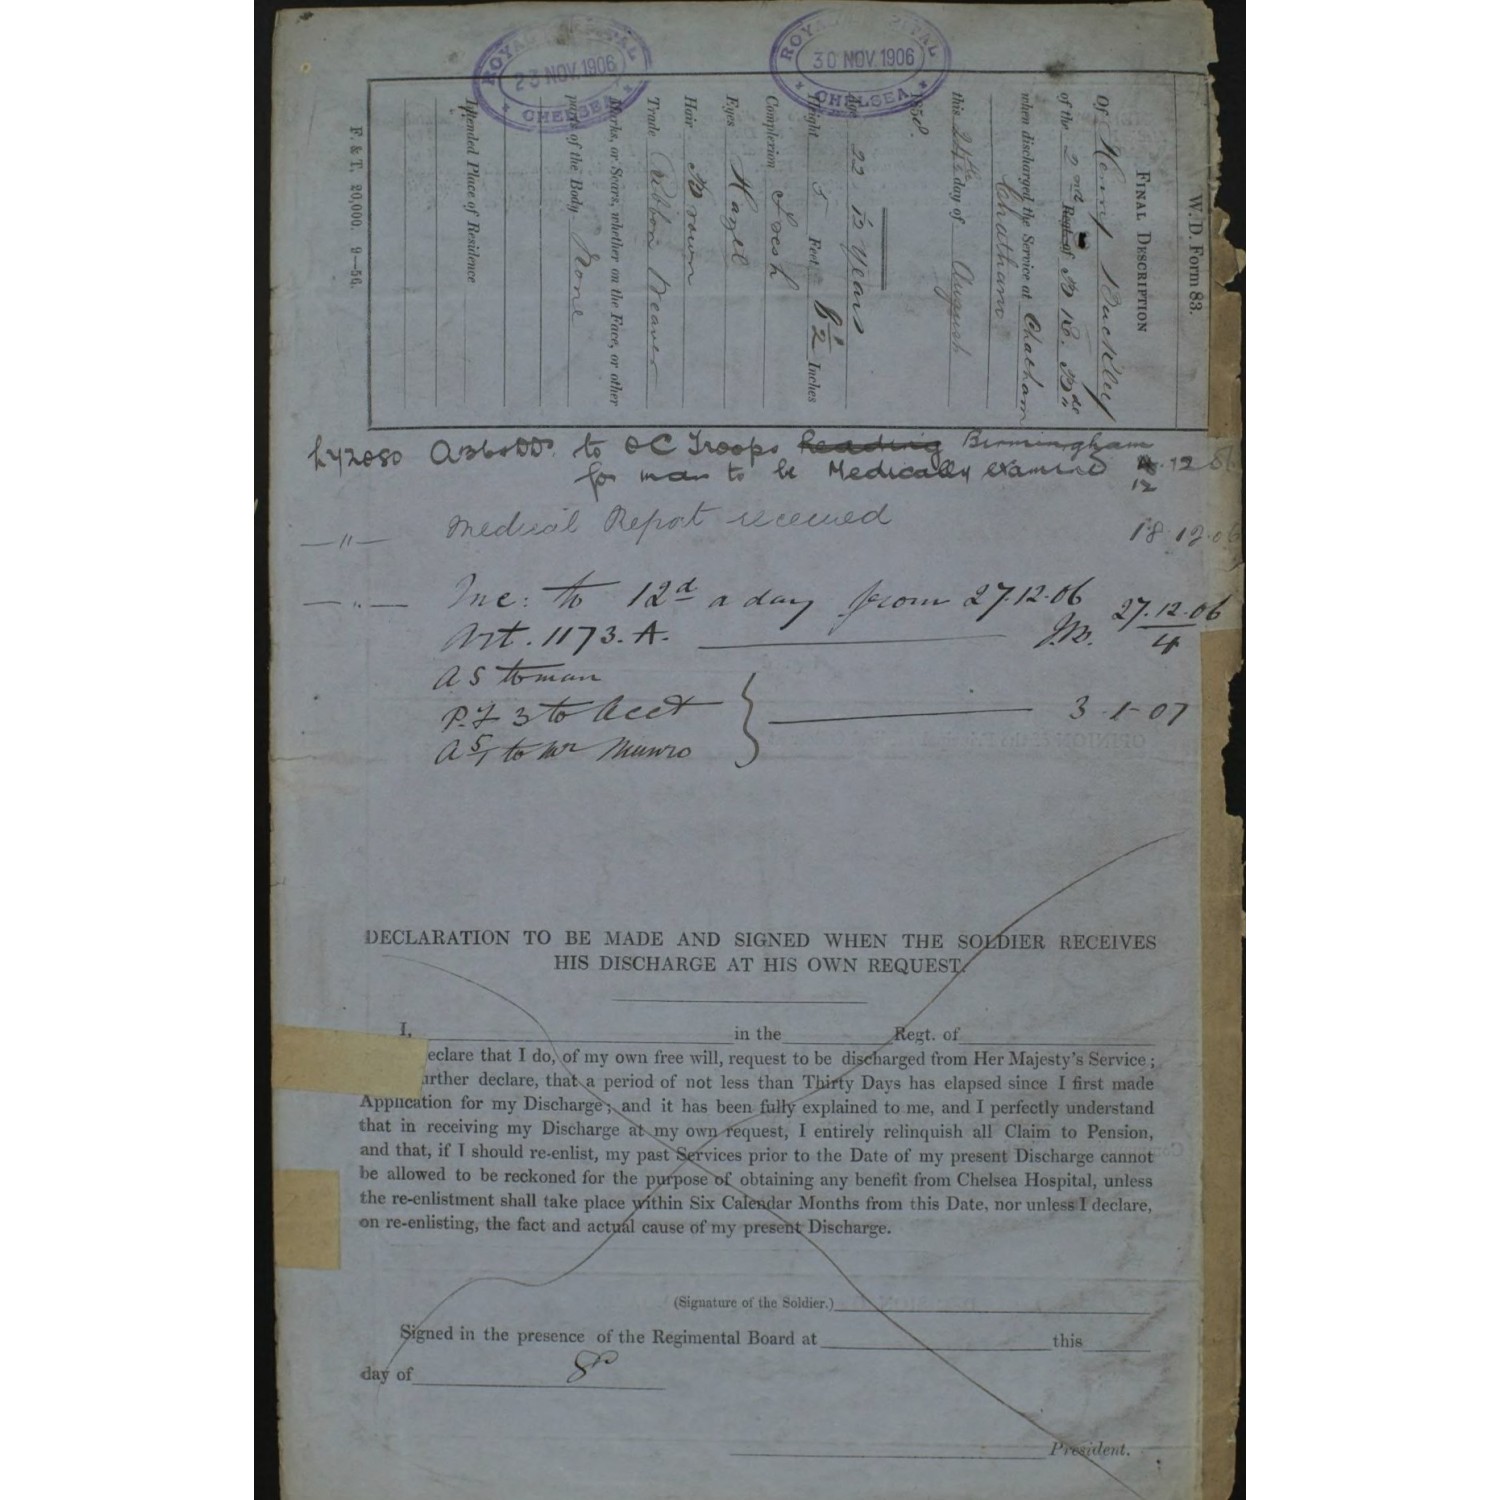 ROYAL HOSPITAL
23 NOV. 1906
CHELSEA
ROYAL HOSPITAL
30 NOV. 1906
CHELSEA
W. D. Form 83.
FINAL DESCRIPTION
Of Henry Buckley
of the 2nd Regt. of
when discharged the Service at Chatham
Chatham
this 24th day of August
1858.
Age 22 Years
Height 5 Feet 6½ Inches
Complexion Fresh
Eyes Hazel
Hair Brown
Trade Ribbon Weaver
Marks, or Scars, whether on the Face, or other
parts of the Body None
Intended Place of Residence
F. & T. 20,000. 9—56.
to OC Troops Reading Birmingham
for man to be Medically examined 12
12
—"— Medical Report received 18.12.06
—"— Inc: to 12d a day from 27.12.06 27.12.06
Art. 1173. A. 4
A 5 to man
P.F 3 to Acct 3-1-07
to Mr Munro
DECLARATION TO BE MADE AND SIGNED WHEN THE SOLDIER RECEIVES
HIS DISCHARGE AT HIS OWN REQUEST.
I, in the Regt. of
eclare that I do, of my own free will, request to be discharged from Her Majesty's Service;
urther declare, that a period of not less than Thirty Days has elapsed since I first made
Application for my Discharge; and it has been fully explained to me, and I perfectly understand
that in receiving my Discharge at my own request, I entirely relinquish all Claim to Pension,
and that, if I should re-enlist, my past Services prior to the Date of my present Discharge cannot
be allowed to be reckoned for the purpose of obtaining any benefit from Chelsea Hospital, unless
the re-enlistment shall take place within Six Calendar Months from this Date, nor unless I declare,
on re-enlisting, the fact and actual cause of my present Discharge.
(Signature of the Soldier.)
Signed in the presence of the Regimental Board at this
day of
President.